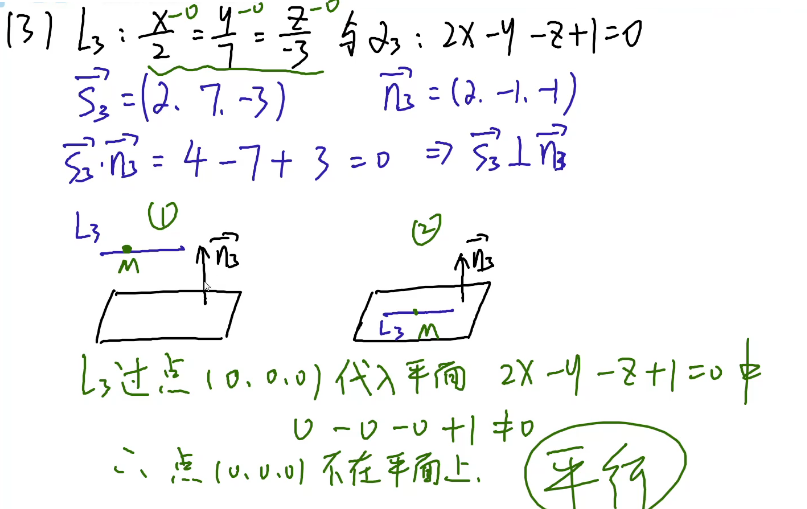 (3) L₃: x-0/2 = y-0/7 = z-0/-3 与 α₃: 2x-y-z+1=0
S₃=(2. 7. -3) n₃=(2. -1. -1)
S₃·n₃ = 4-7+3 =0 ⇒ S₃⊥n₃
① ②
L₃ M n₃
L₃ M n₃
L₃过点(0.0.0)代入平面 2x-y-z+1=0中
0-0-0+1≠0
∴点(0.0.0)不在平面上. 平行